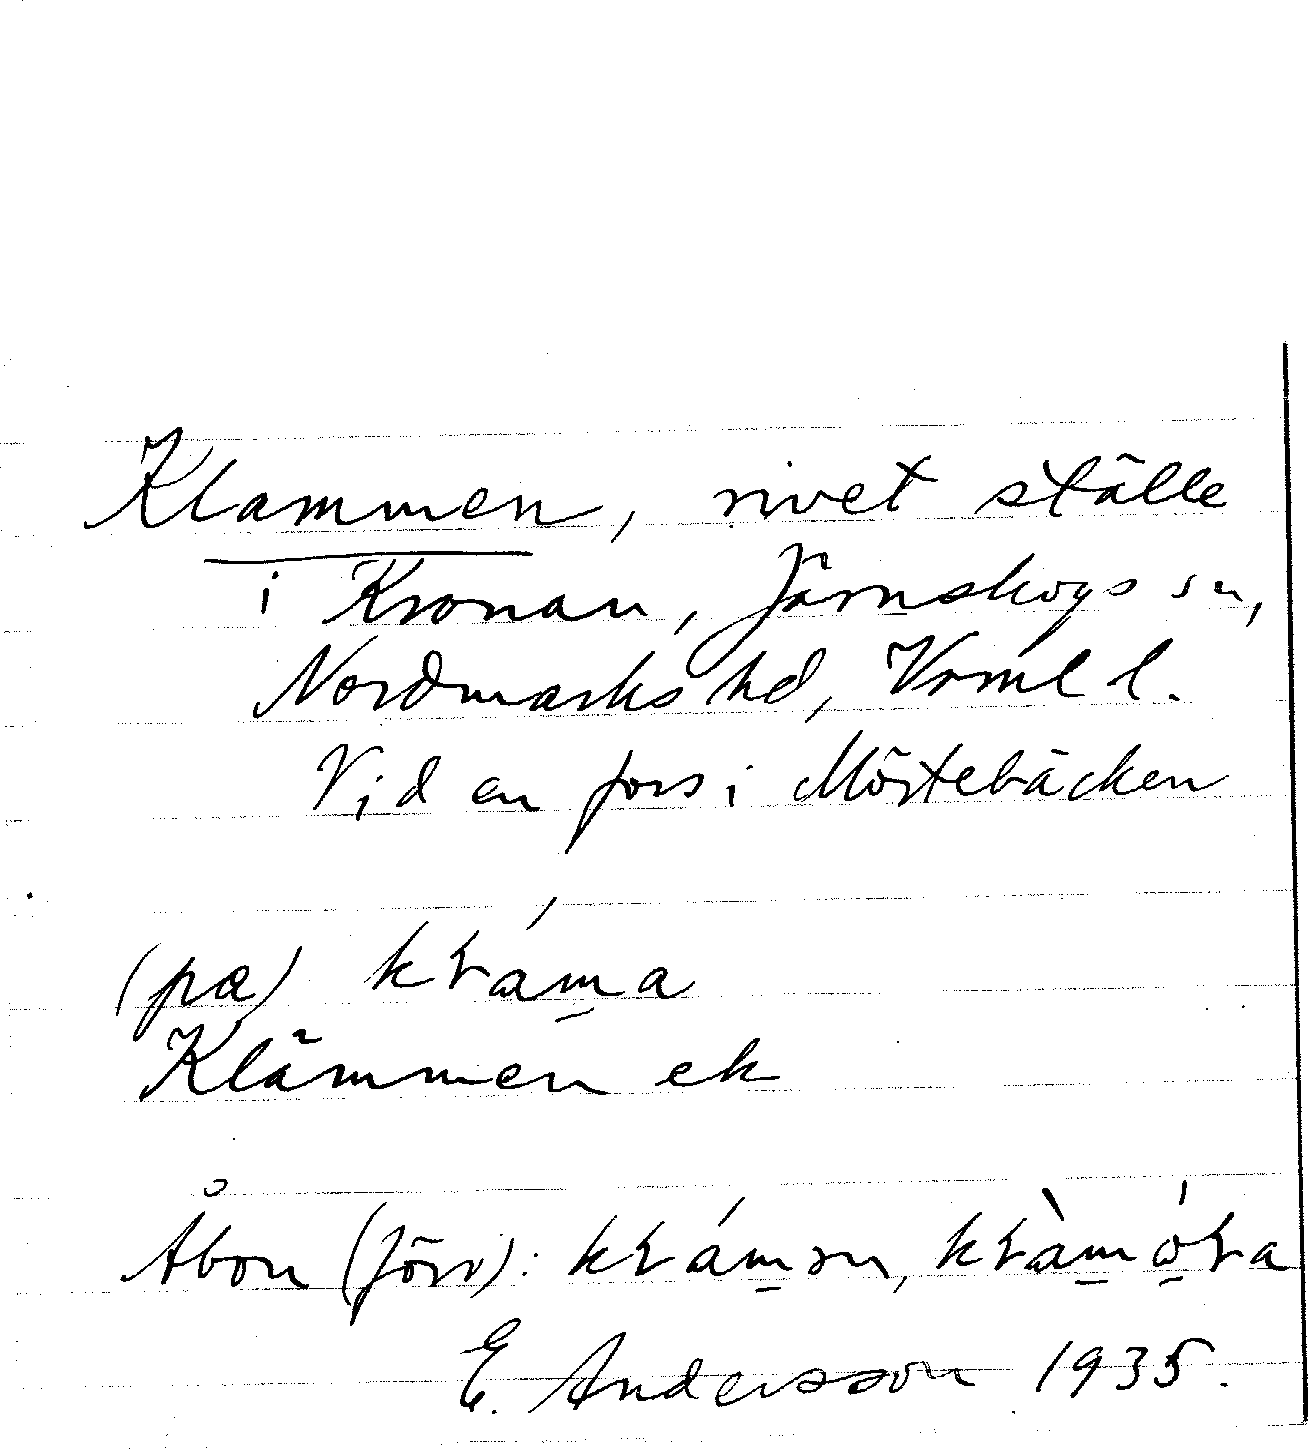 Klammen, rivet ställe
i Kronan, Järnskogs sn,
Nordmarks hd, Vrml l.
Vid en fors i Mörtebäcken
(pæ) kɽáma
Klämmen ek
Åbon (förr): kɽámən, kɽàmóɽa
E. Andersson 1935.